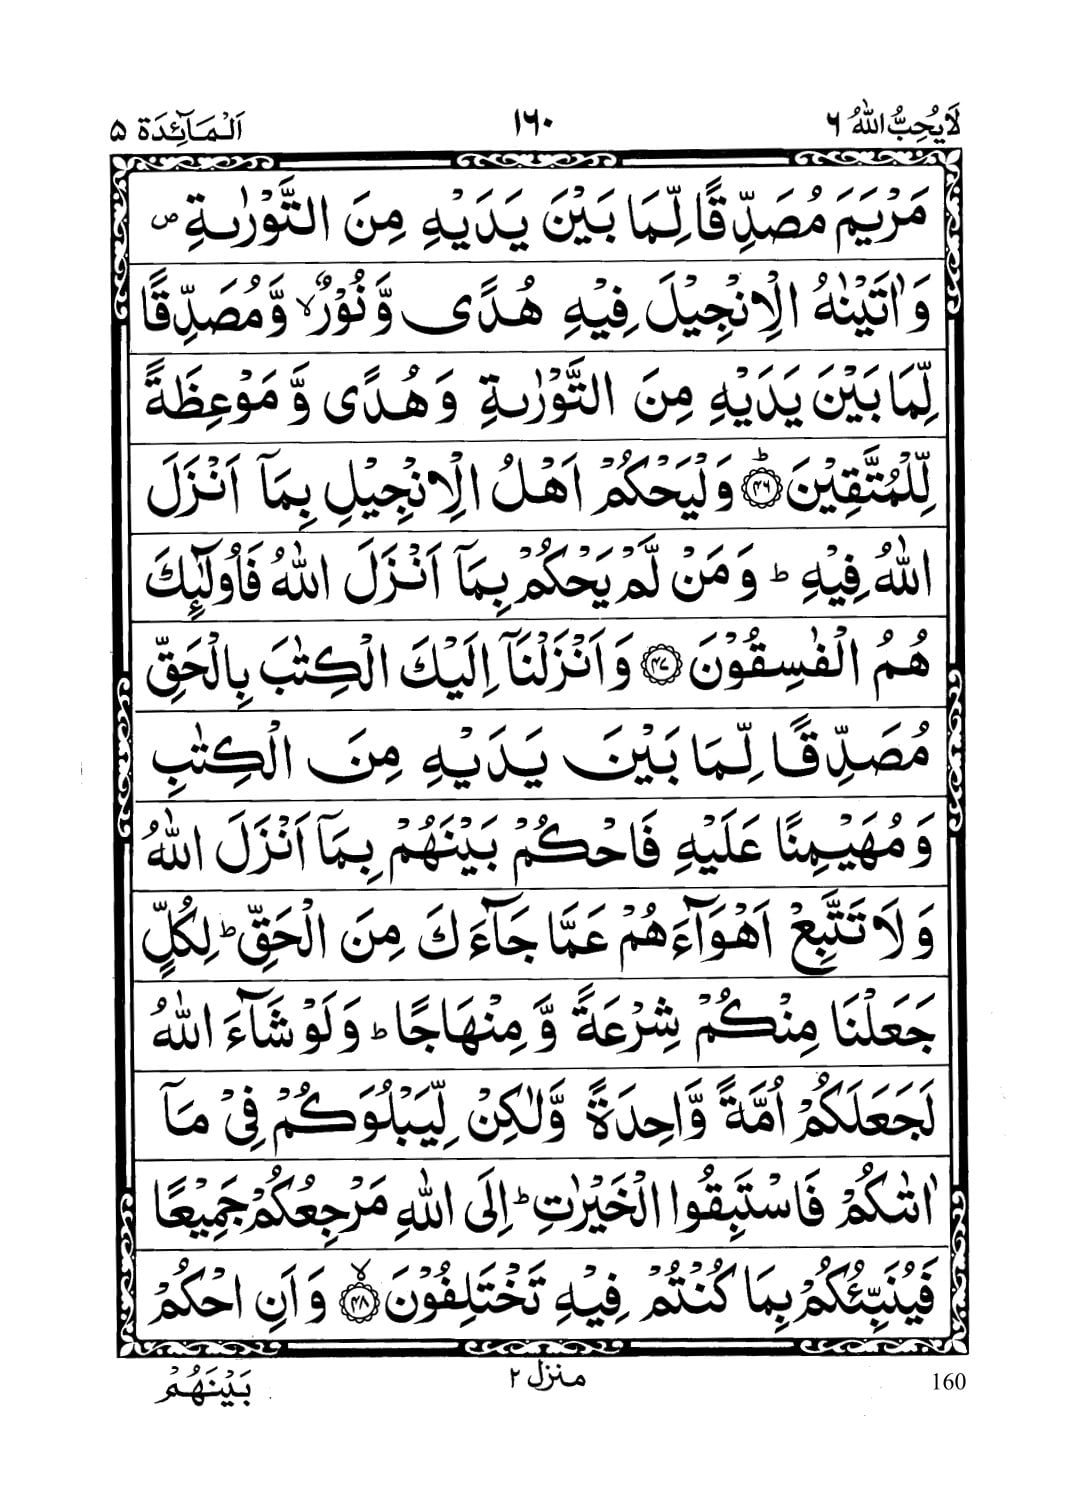 لَا يُحِبُّ اللّٰهُ ٦
١٦٠
اَلْمَآئِدَة ٥
مَرْيَمَ مُصَدِّقًا لِّمَا بَيْنَ يَدَيْهِ مِنَ التَّوْرٰىةِ ۪
وَاٰتَيْنٰهُ الْاِنْجِيْلَ فِيْهِ هُدًى وَّنُوْرٌ ۙ وَّمُصَدِّقًا
لِّمَا بَيْنَ يَدَيْهِ مِنَ التَّوْرٰىةِ وَهُدًى وَّ مَوْعِظَةً
لِّلْمُتَّقِيْنَ ؕ﴿۴۶﴾ وَلْيَحْكُمْ اَهْلُ الْاِنْجِيْلِ بِمَآ اَنْزَلَ
اللّٰهُ فِيْهِ ؕ وَمَنْ لَّمْ يَحْكُمْ بِمَآ اَنْزَلَ اللّٰهُ فَاُولٰٓئِكَ
هُمُ الْفٰسِقُوْنَ ﴿۴۷﴾ وَاَنْزَلْنَآ اِلَيْكَ الْكِتٰبَ بِالْحَقِّ
مُصَدِّقًا لِّمَا بَيْنَ يَدَيْهِ مِنَ الْكِتٰبِ
وَمُهَيْمِنًا عَلَيْهِ فَاحْكُمْ بَيْنَهُمْ بِمَآ اَنْزَلَ اللّٰهُ
وَلَا تَتَّبِعْ اَهْوَآءَهُمْ عَمَّا جَآءَكَ مِنَ الْحَقِّ ؕ لِكُلٍّ
جَعَلْنَا مِنْكُمْ شِرْعَةً وَّ مِنْهَاجًا ؕ وَلَوْ شَآءَ اللّٰهُ
لَجَعَلَكُمْ اُمَّةً وَّاحِدَةً وَّلٰكِنْ لِّيَبْلُوَكُمْ فِيْ مَآ
اٰتٰىكُمْ فَاسْتَبِقُوا الْخَيْرٰتِ ؕ اِلَى اللّٰهِ مَرْجِعُكُمْ جَمِيْعًا
فَيُنَبِّئُكُمْ بِمَا كُنْتُمْ فِيْهِ تَخْتَلِفُوْنَ ۙ﴿۴۸﴾ وَاَنِ احْكُمْ
160
منزل ٢
بَيْنَهُمْ